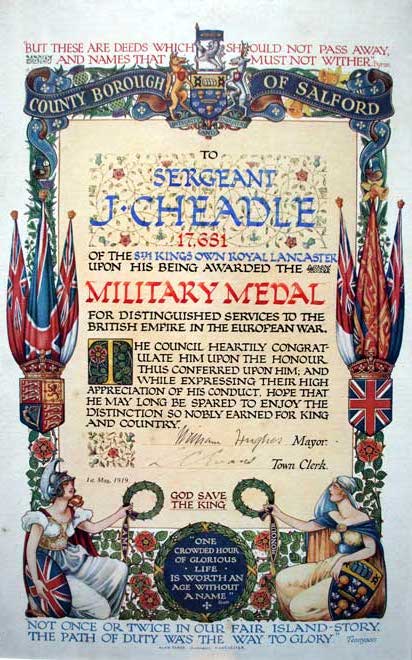 "BUT THESE ARE DEEDS WHICH SHOULD NOT PASS AWAY,
AND NAMES THAT MUST NOT WITHER." Byron
COUNTY BOROUGH OF SALFORD
TO
SERGEANT
J·CHEADLE
17,681
OF THE 8TH KINGS OWN ROYAL LANCASTER
UPON HIS BEING AWARDED THE
MILITARY MEDAL
FOR DISTINGUISHED SERVICES TO THE
BRITISH EMPIRE IN THE EUROPEAN WAR.
THE COUNCIL HEARTILY CONGRAT-
ULATE HIM UPON THE HONOUR
THUS CONFERRED UPON HIM; AND
WHILE EXPRESSING THEIR HIGH
APPRECIATION OF HIS CONDUCT, HOPE THAT
HE MAY LONG BE SPARED TO ENJOY THE
DISTINCTION SO NOBLY EARNED FOR KING
AND COUNTRY.
William Hughes Mayor.
Town Clerk.
1st. May, 1919.
GOD SAVE
THE KING
"ONE
CROWDED HOUR
OF GLORIOUS
· LIFE ·
IS WORTH AN
AGE WITHOUT
A NAME"
NOT ONCE OR TWICE IN OUR FAIR ISLAND-STORY,
THE PATH OF DUTY WAS THE WAY TO GLORY." Tennyson